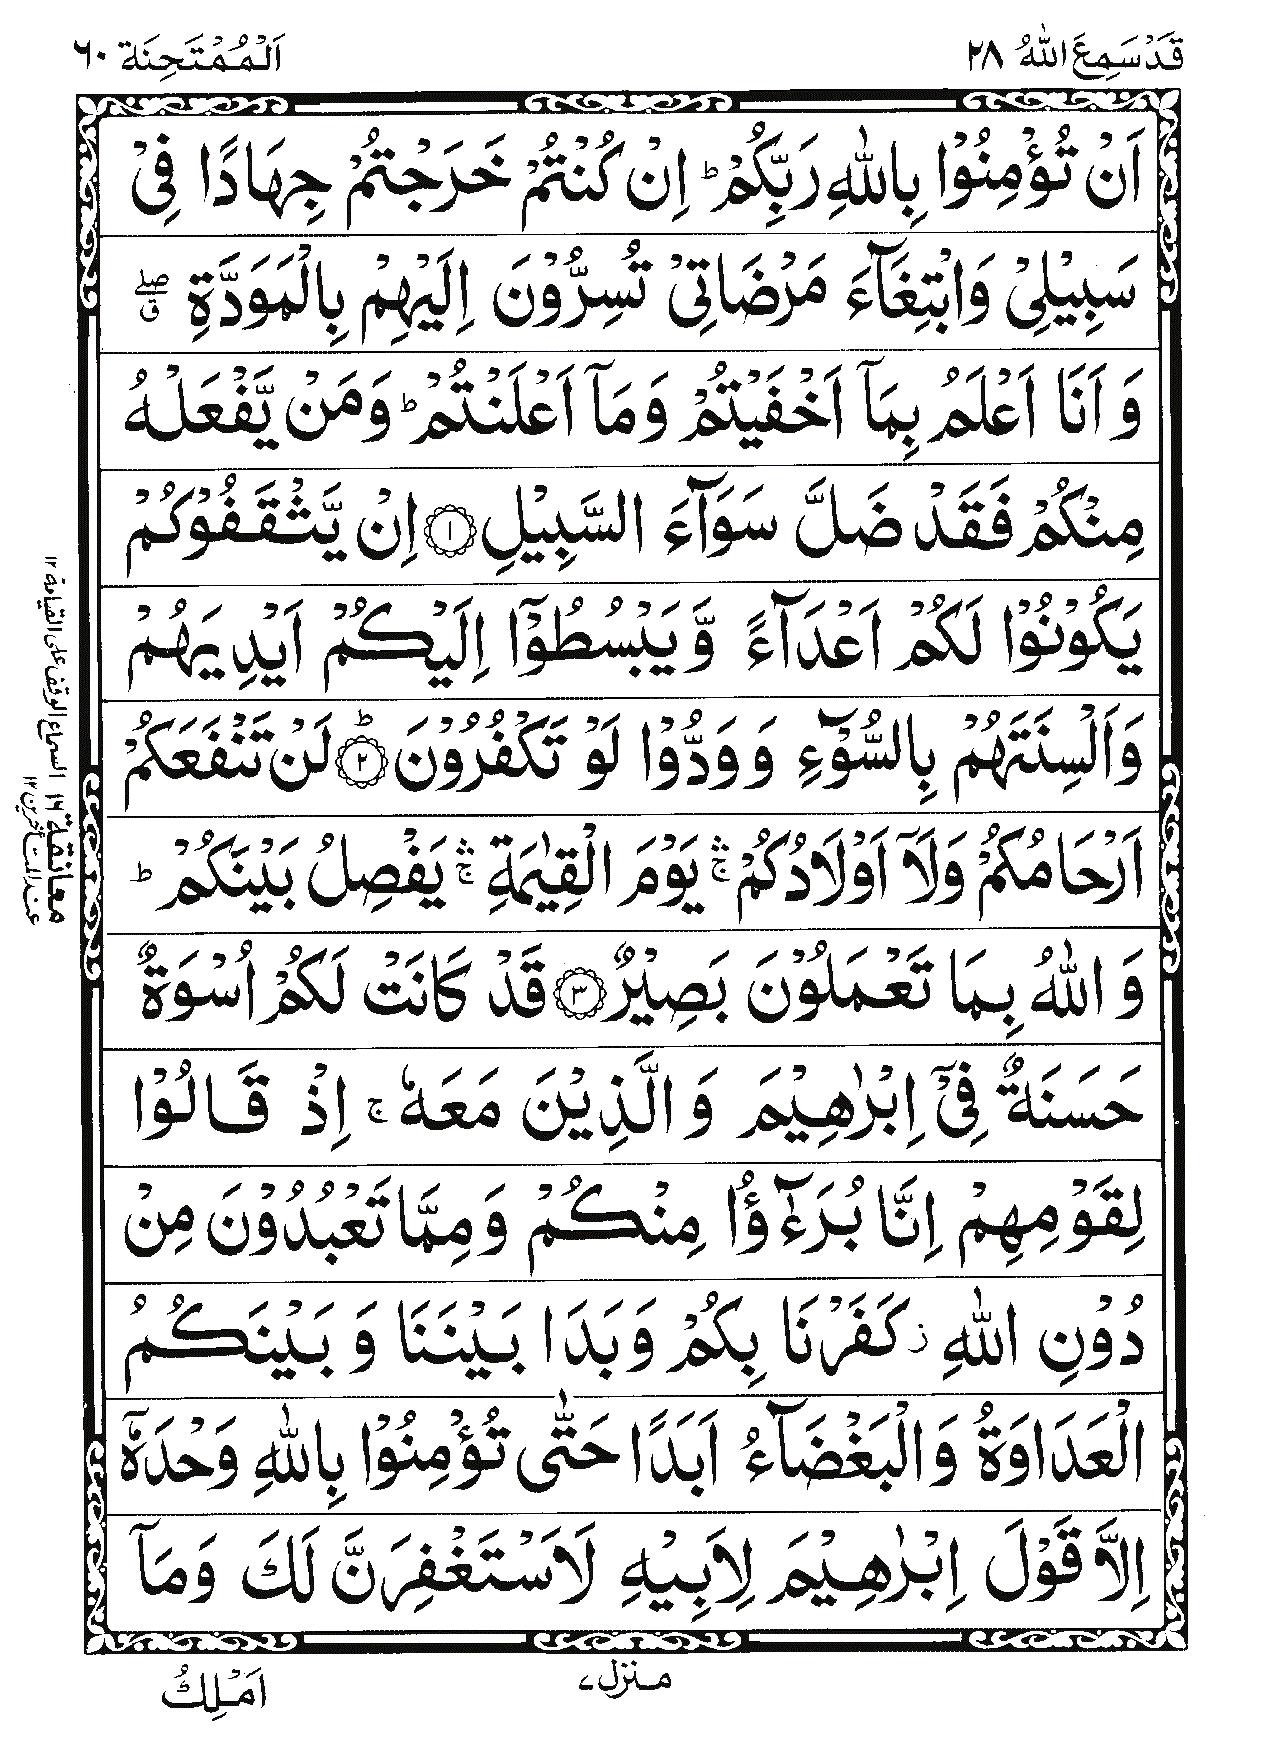 قَدۡ سَمِعَ اللّٰهُ ٢٨
اَلۡمُمۡتَحِنَة ٦٠
اَنۡ تُؤۡمِنُوۡا بِاللّٰهِ رَبِّكُمۡ ؕ اِنۡ كُنۡتُمۡ خَرَجۡتُمۡ جِهَادًا فِىۡ
سَبِيۡلِىۡ وَابۡتِغَآءَ مَرۡضَاتِىۡ تُسِرُّوۡنَ اِلَيۡهِمۡ بِالۡمَوَدَّةِ ۖق
وَ اَنَا اَعۡلَمُ بِمَاۤ اَخۡفَيۡتُمۡ وَ مَاۤ اَعۡلَنۡتُمۡ ؕ وَمَنۡ يَّفۡعَلۡهُ
مِنۡكُمۡ فَقَدۡ ضَلَّ سَوَآءَ السَّبِيۡلِ ﴿١﴾ اِنۡ يَّثۡقَفُوۡكُمۡ
يَكُوۡنُوۡا لَكُمۡ اَعۡدَآءً وَّ يَبۡسُطُوۡۤا اِلَيۡكُمۡ اَيۡدِيَهُمۡ
وَاَلۡسِنَتَهُمۡ بِالسُّوۡٓءِ وَ وَدُّوۡا لَوۡ تَكۡفُرُوۡنَ ؕ ﴿٢﴾ لَنۡ تَنۡفَعَكُمۡ
اَرۡحَامُكُمۡ وَلَاۤ اَوۡلَادُكُمۡ ۛۚ يَوۡمَ الۡقِيٰمَةِ ۛۚ يَفۡصِلُ بَيۡنَكُمۡ ؕ
وَ اللّٰهُ بِمَا تَعۡمَلُوۡنَ بَصِيۡرٌ ﴿٣﴾ قَدۡ كَانَتۡ لَكُمۡ اُسۡوَةٌ
حَسَنَةٌ فِىۡۤ اِبۡرٰهِيۡمَ وَ الَّذِيۡنَ مَعَهٗ ۚ اِذۡ قَالُوۡا
لِقَوۡمِهِمۡ اِنَّا بُرَءٰٓؤُا مِنۡكُمۡ وَ مِمَّا تَعۡبُدُوۡنَ مِنۡ
دُوۡنِ اللّٰهِ ز كَفَرۡنَا بِكُمۡ وَ بَدَا بَيۡنَنَا وَ بَيۡنَكُمُ
الۡعَدَاوَةُ وَالۡبَغۡضَآءُ اَبَدًا حَتّٰى تُؤۡمِنُوۡا بِاللّٰهِ وَحۡدَهٗۤ
اِلَّا قَوۡلَ اِبۡرٰهِيۡمَ لِاَبِيۡهِ لَاَسۡتَغۡفِرَنَّ لَكَ وَمَاۤ
منزل ٧
اَمۡلِكُ
معانقة ١٦ السماع الوقف على القيامة ١٢
عند المتأخرين ١٢